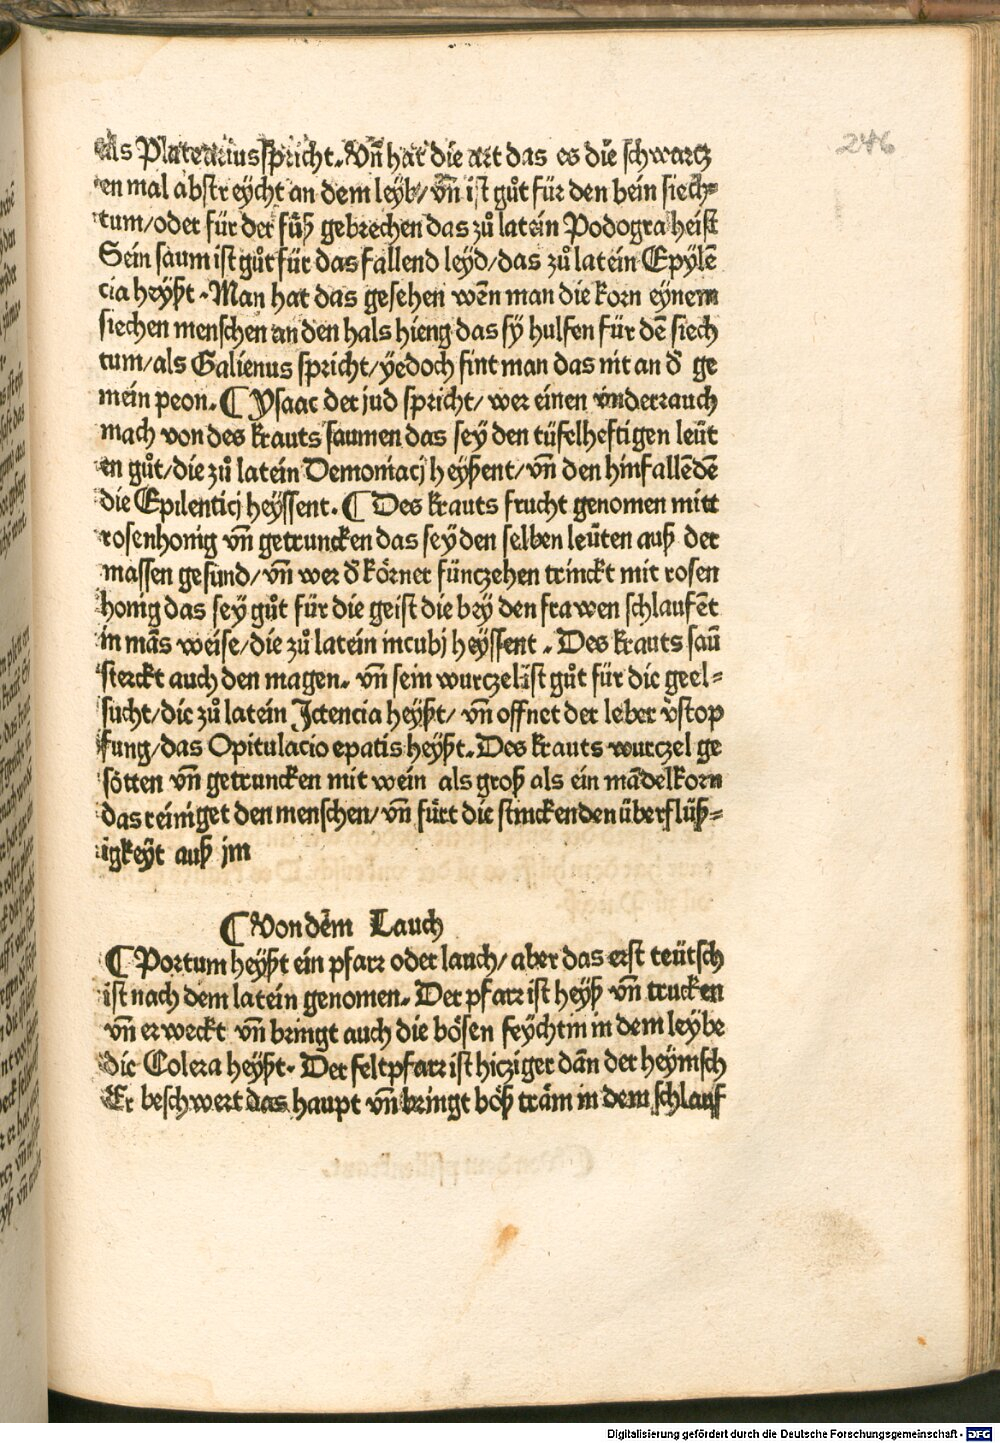 246
als Platearius spricht. Vñ hat die art das es die schwartz
en mal abstreycht an dem leyb/ vñ ist gůt für den bein siech⸗
tum/oder für der fůß gebrechen das zů latein Podogra heist
Sein saum ist gůt für das fallend leyd/das zů latein Epylē
cia heyßt. Man hat das gesehen wēn man die korn eynem
siechen menschen an den hals hieng das sy hulfen für dē siech
tum/als Galienus spricht/yedoch fint man das nit an d̕ ge
mein peon. ¶ Ysaac der jud spricht/ wer einen vnderrauch
mach von des krauts saumen das sey den tüfelheftigen leüt
en gůt/die zů latein Demoniacj heyßent/ vñ den hinfallēdē
die Epilenticj heyssent. ¶ Des krauts frucht genomen mitt
rosenhonig vñ getruncken das sey den selben leüten auß der
massen gesund/ vñ wer d̕ körner fünczehen trinckt mit rosen
honig das sey gůt für die geist die bey den frawen schlaufēt
in mās weise/die zů latein incubj heyssent . Des krauts saū
sterckt auch den magen. vñ sein wurczel ist gůt für die geel⸗
sucht/die zů latein Jctencia heyßt/ vñ offnet der leber v̕stop
fung/das Opitulacio epatis heyßt. Des krauts wurczel ge
sotten vñ getruncken mit wein als groß als ein mādelkorn
das reiniget den menschen/ vñ fürt die stinckenden überflüß⸗
igkeyt auß jm
¶ Von dēm Lauch
¶ Portum heyßt ein pfarr oder lauch/ aber das erst teütsch
ist nach dem latein genomen. Der pfarr ist heyß vñ trucken
vñ erweckt vñ bringt auch die bösen feychtin in dem leybe
die Colera heyßt. Der feltpfarr ist hicziger dān der heymsch
Er beschwert das haupt vñ bringt böß träm in dem schlauf
Digitalisierung gefördert durch die Deutsche Forschungsgemeinschaft - DFG